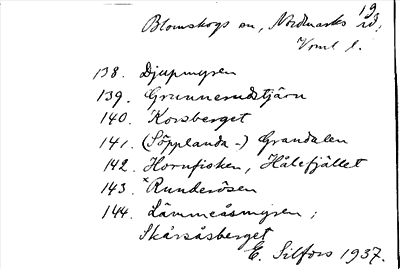 19
Blomskogs sn, Nordmarks hd,
Vrml l.
138. Djupmyren
139. Grunnerudstjärn
140. Korsberget
141. (Söpplanda-) Grandalen
142. Hornfisken, Hålefjället
143. ˣRunderösen
144. Lämmeåsmyren;
Skårsåsberget
E. Silfors 1937.